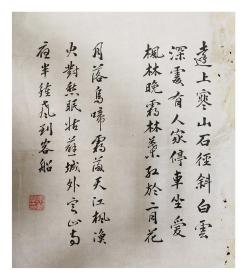 遠上寒山石徑斜白雲
深處有人家停車坐愛
楓林晚霜林葉紅於二月花
月落烏啼霜滿天江楓漁
火對愁眠姑蘇城外寒山寺
夜半鐘聲到客船